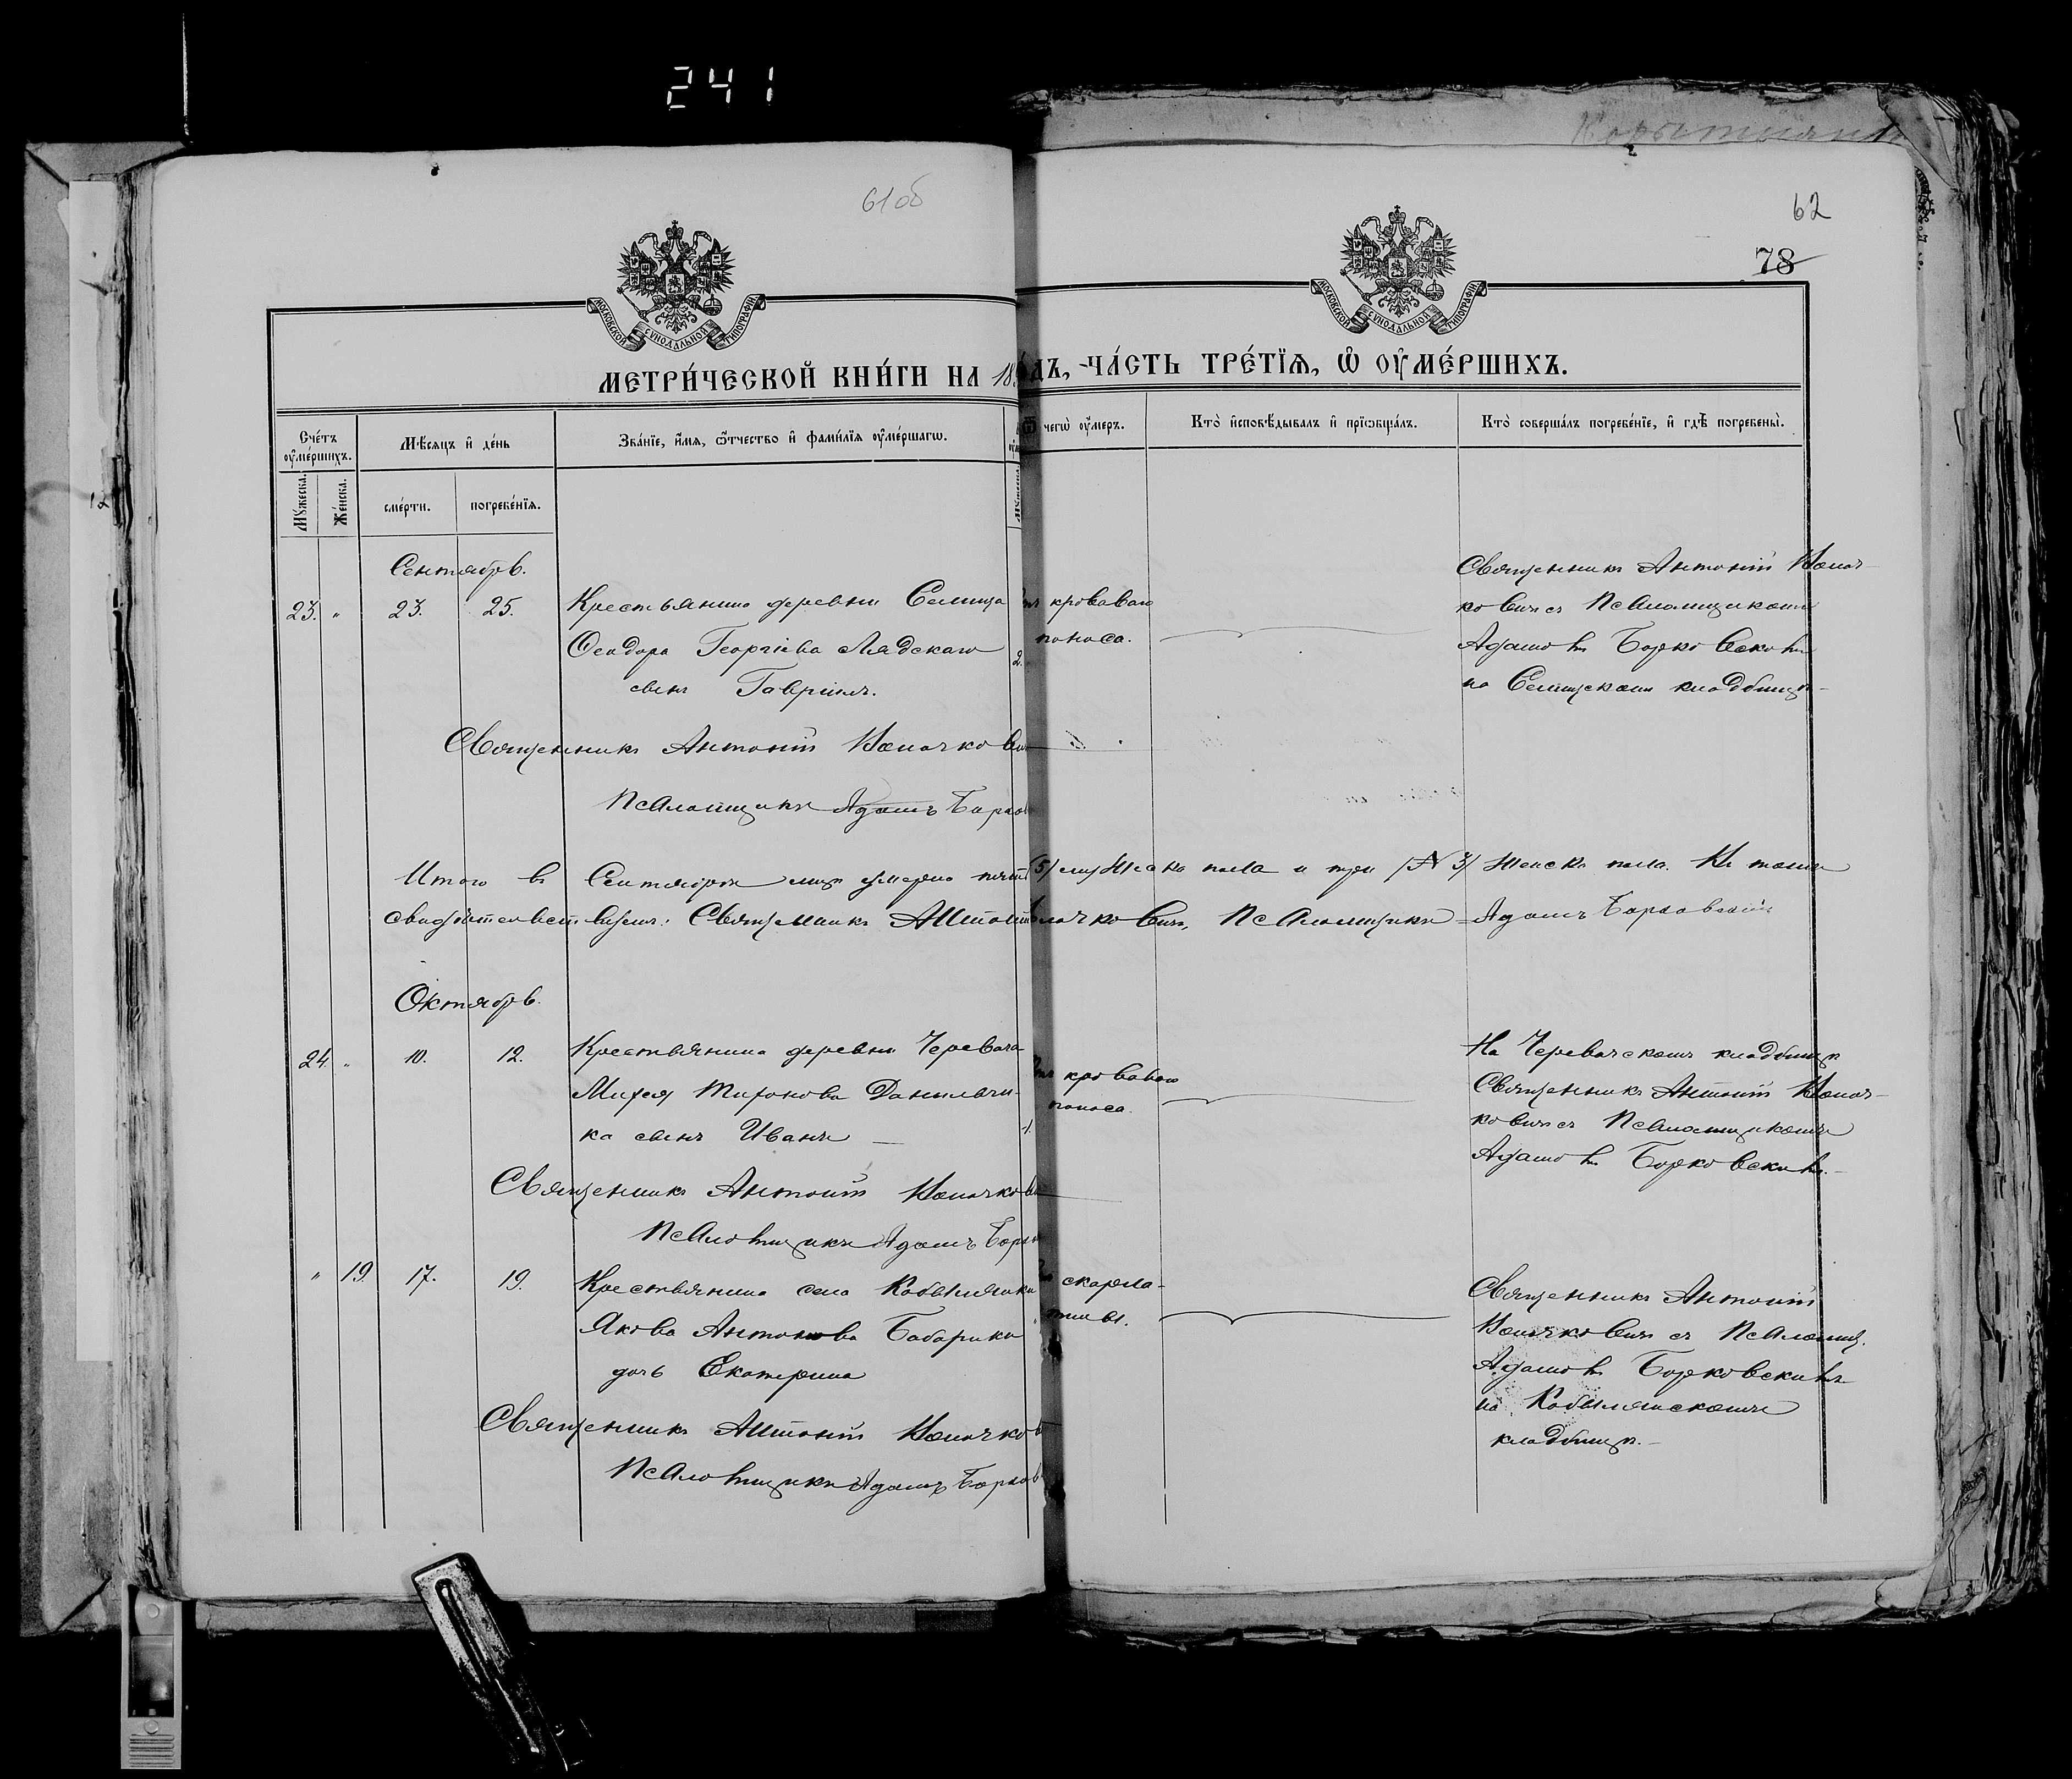 241
61об
62
78
МОСКОВСКОЙ СѴНОДАЛЬНОЙ ТИПОГРАФІИ
МОСКОВСКОЙ СѴНОДАЛЬНОЙ ТИПОГРАФІИ
МЕТРИ́ЧЕСКОЙ КНИ́ГИ НА 18
ДЪ, ЧА́СТЬ ТРЕ́ТЇѦ, Ѡ҆ ОУ҆МЕ́РШИХЪ.
Сче́тъ оу҆ме́ршихъ.
Мѣ́сяцъ и҆ де́нь
Зва́нїе, и҆́мя, ѻ҆́тчество и҆ фами́лїя оу҆ме́ршагѡ.
Ѿ чегѡ̀ оу҆́меръ.
Кто̀ и҆сповѣ́дывалъ и҆ прїѻбща́лъ.
Кто̀ соверша́лъ погребе́нїе, и҆ гдѣ̀ погребены̀.
Мꙋ́жеска.
Же́нска.
сме́рти.
погребе́нїя.
Сентябрь.
23. " 23. 25. Крестьянина деревни Селища
Ѳеодора Георгіева Лядскаго
сынъ Гавріилъ.
2.
кроваваго
поноса.
Священникъ Антоній
ковичъ съ Псаломщикомъ
Адамомъ Борковскимъ
на Селищскомъ кладбищѣ
Священникъ Антоній
Псаломщикъ Адамъ
Итого въ Сентябрѣ м-цѣ умерло пять /5/ мужеска пола и три /№ 3/ женска пола. Въ томъ
свидѣтельствуемъ: Священникъ Антоній Псаломщикъ Адамъ Борковскій
Октябрь.
24. " 10. 12. Крестьянина деревни Черевача
Михея Тихонова Данильчи-
ка сынъ Иванъ
1.
кроваваго
поноса.
На Черевачскомъ кладбищѣ
Священникъ Антоній
ковичъ съ Псаломщикомъ
Адамомъ Борковскимъ.
Священникъ Антоній
Псаломщикъ Адамъ
" 19. 17. 19. Крестьянина села Кобылянки
Якова Антонова Бабарики
дочь Екатерина
скарла-
тины.
Священникъ Антоній
съ Псаломщ.
Адамомъ Борковскимъ
на Кобылянскомъ
кладбищѣ.
Священникъ Антоній
Псаломщикъ Адамъ